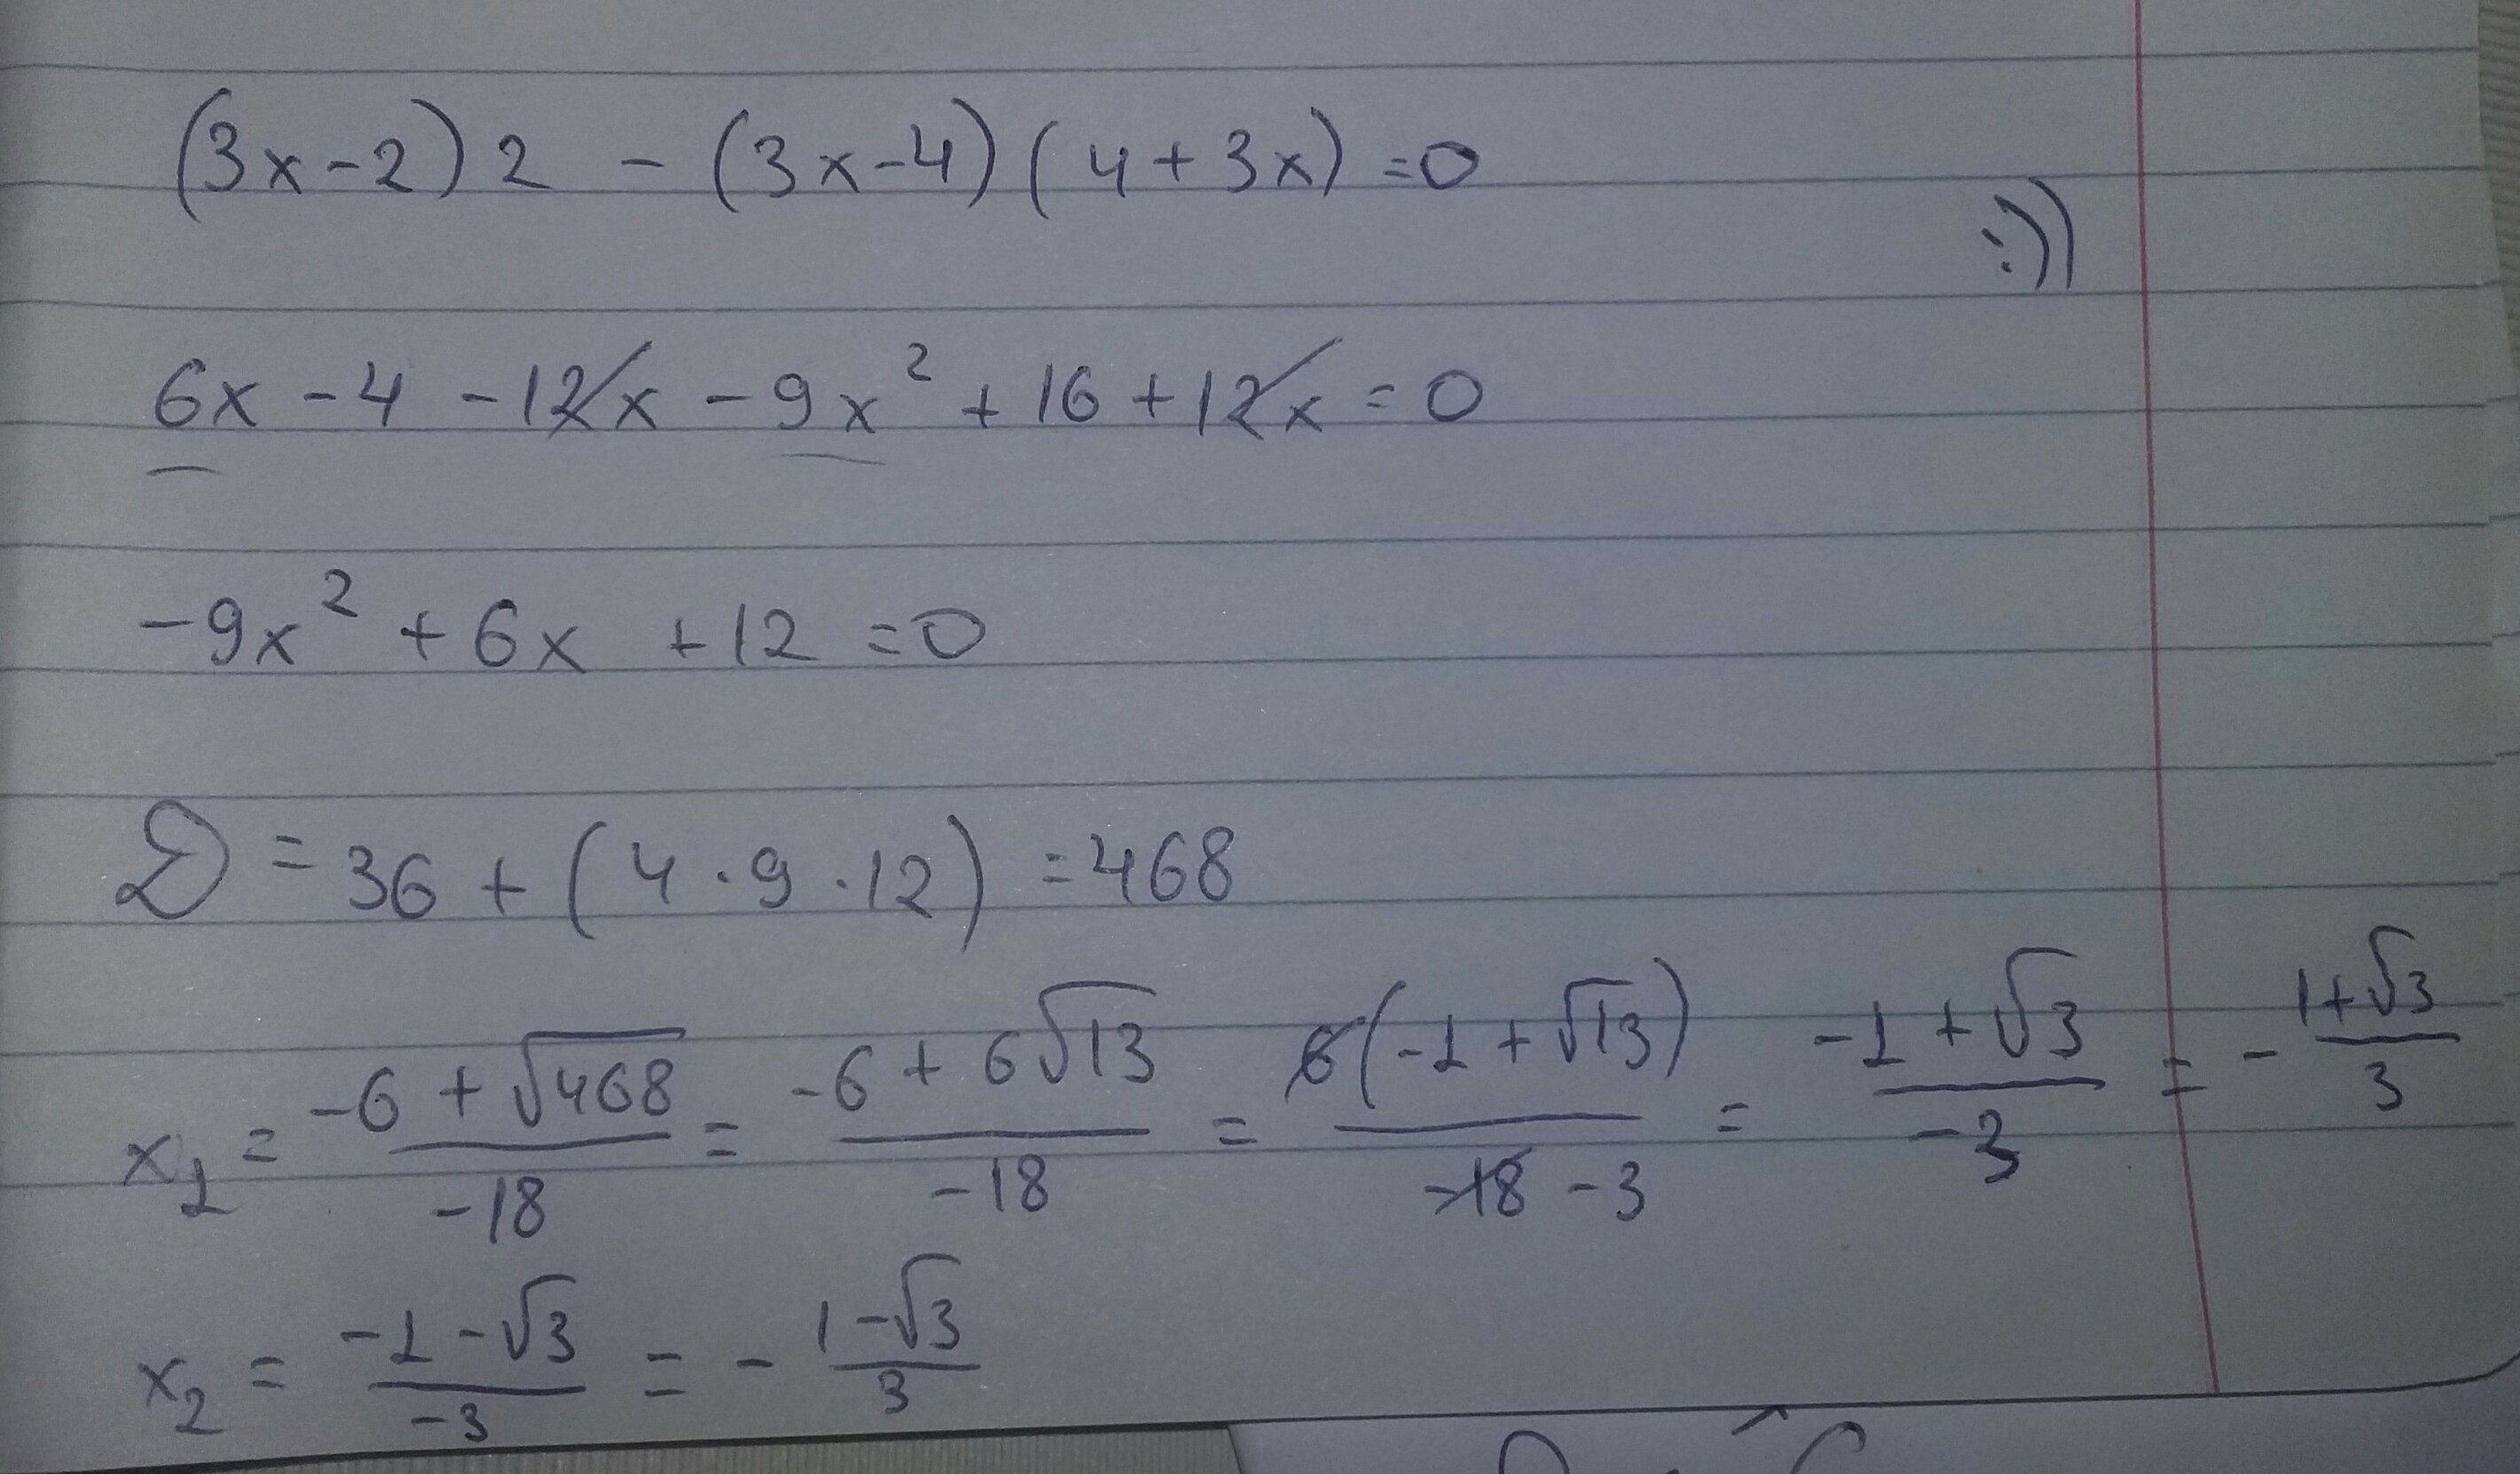 (3x-2)2 - (3x-4)(4+3x)=0
:))
6x-4-12x-9x²+16+12x=0
-9x²+6x+12=0
D=36+(4·9·12)=468
x₁ = (-6+√468)/(-18) = (-6+6√13)/(-18) = 6(-1+√13)/(-18 -3) = (-1+√3)/(-3) = - (1+√3)/3
x₂ = (-1-√3)/(-3) = - (1-√3)/3